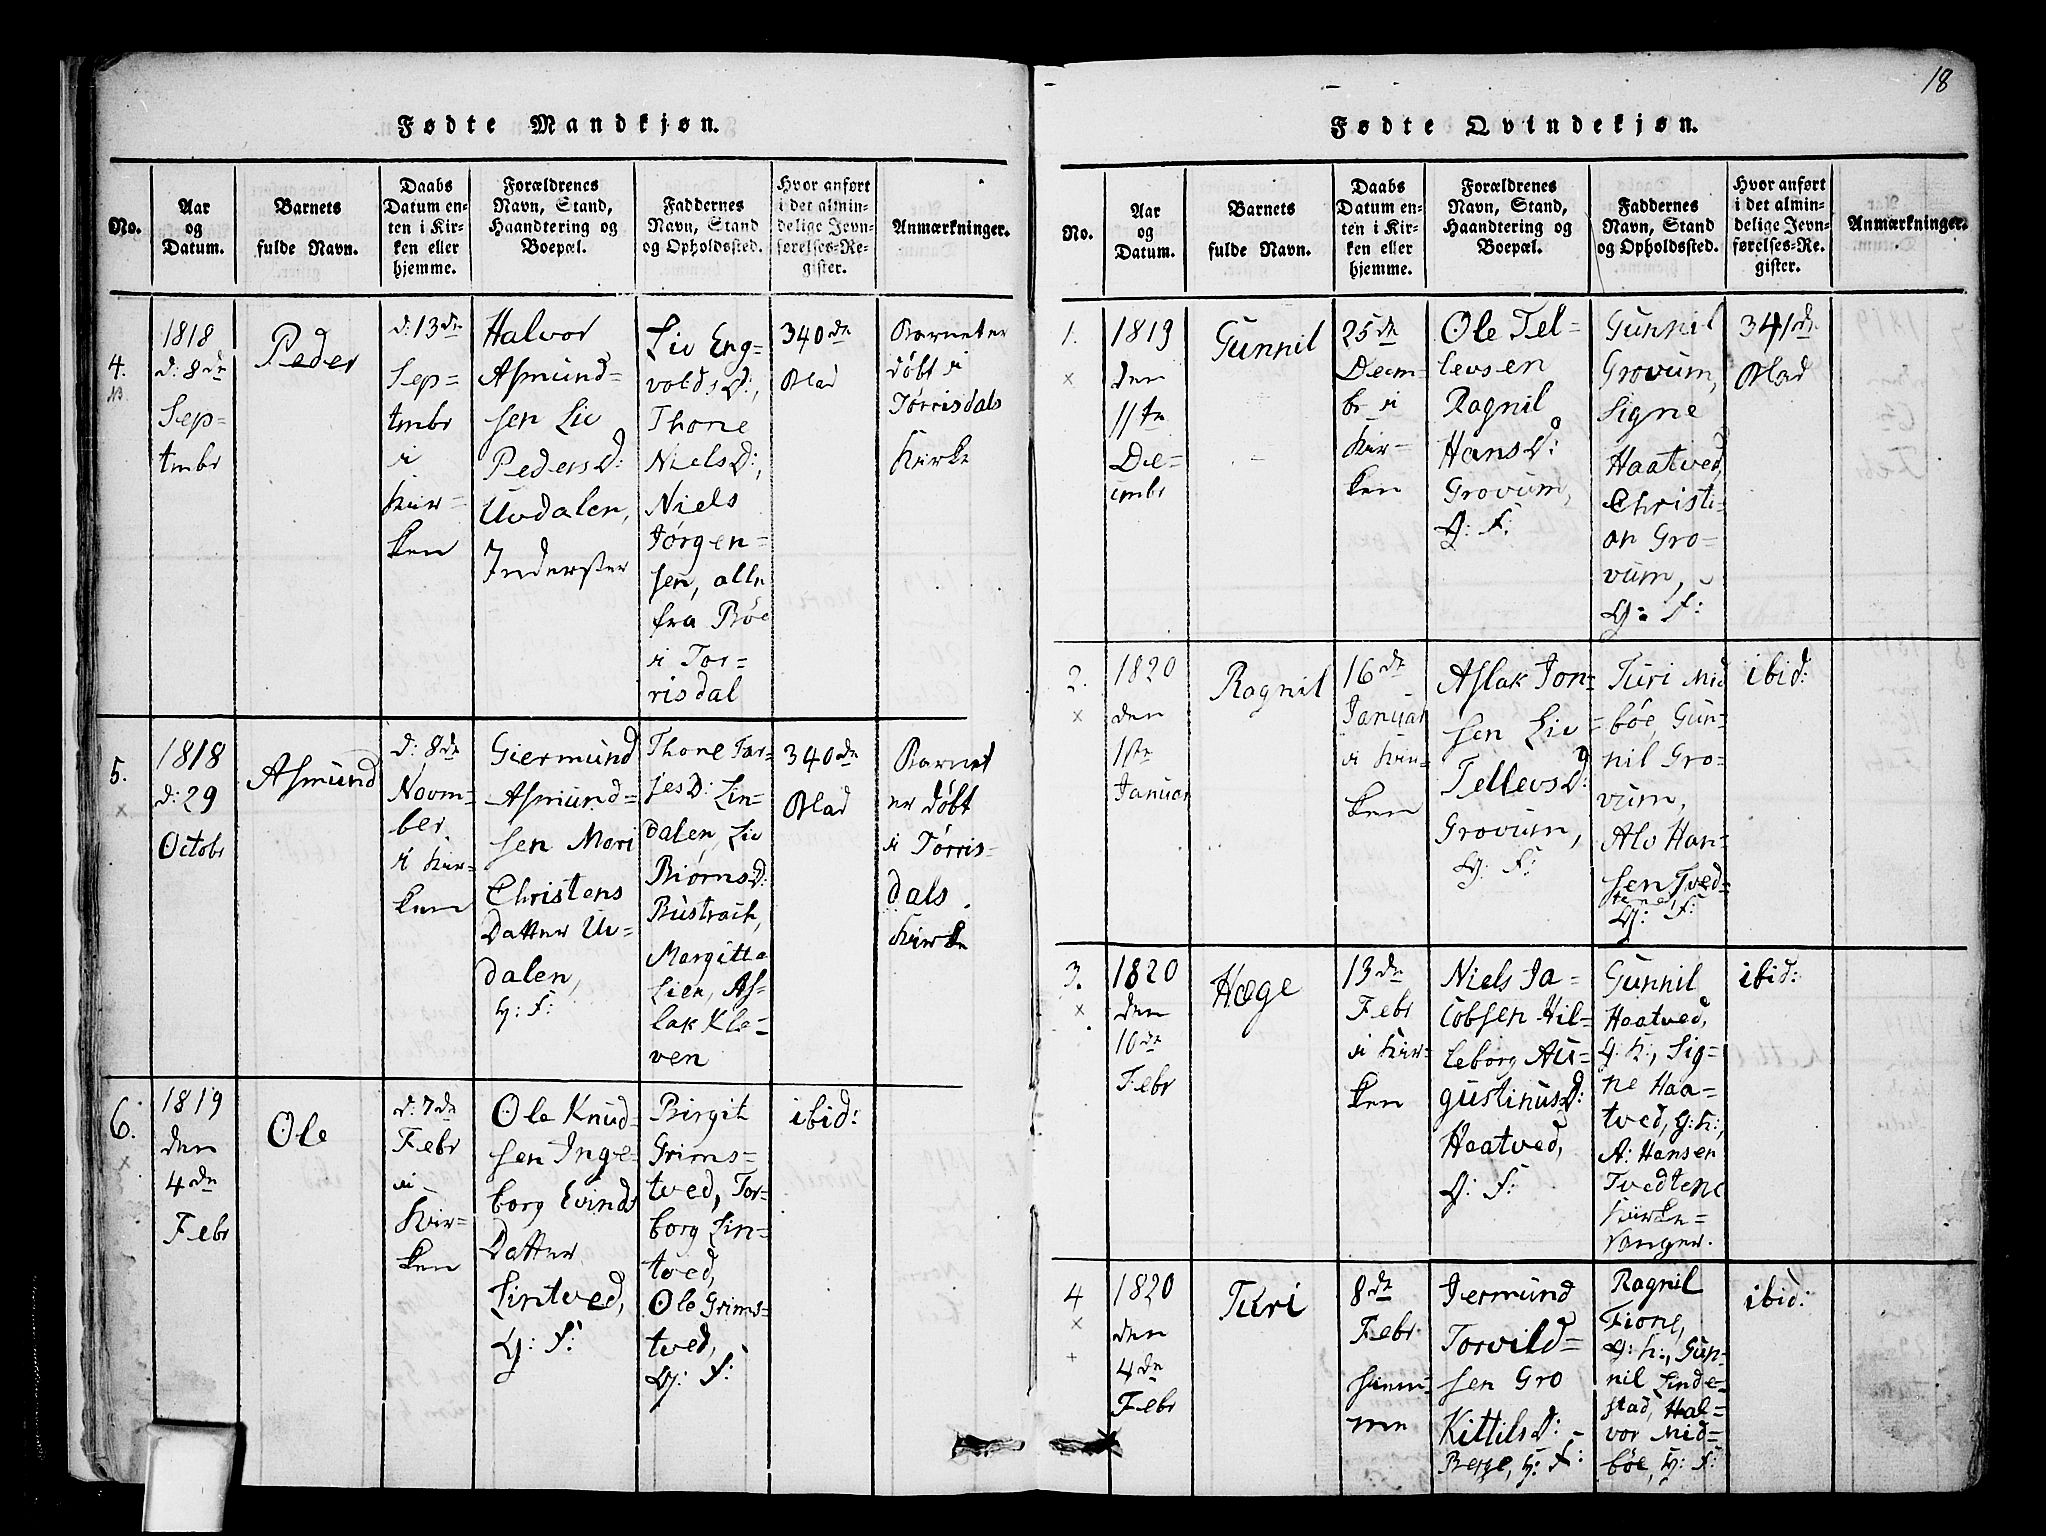 Fødte Mandkjøn.
No.
Aar
og
Datum.
Barnets
fulde Navn.
Daabs
Datum en-
ten i Kir-
ken eller
hjemme.
Forældrenes
Navn, Stand,
Haandtering og
Boepæl.
Faddernes
Navn, Stand
og Opholdssted.
Hvor anført
i det almin-
delige Jevn-
førelses-Re-
gister.
Anmærkninger.
4.
1818
d: 8de
Sep=
tmbr
Peder
d: 13de
Sep=
tmbr
i
Kir=
ken
Halvor
Asmund=
sen Liv
PedersD:
Uvdalen,
Inderster
Liv Eng=
voldsD:,
Thone
NielsD:,
Niels
Jørgen=
sen, alle
fra Böe
i Tor=
risdal
340de
Blad
Barnet er
döbt i
Törrisdals
Kirke
5.
x
1818
d: 29
Octobr
Asmund
d: 8de
Novm=
ber
i Kir=
ken
Giermund
Asmund=
sen Mari
Christens
Datter Uv=
dalen,
G: F:
Thone Tar=
jesD: Lin=
dalen, Liv
BiörnsD:
Bustrach,
Margitte
Lien, As=
lak Kle=
ven
340de
Blad
Barnet
er döbt
i Törris=
dals
Kirke
6.
x
1819
den
4de
Febr
Ole
d: 7de
Febr
i
Kir=
ken
Ole Knud=
sen Inge=
borg Evinds
Datter
Lintved,
G: F:
Birgit
Grims=
tved, Tor=
borg Lin=
tved,
Ole Grims=
tved,
G: F:
ibid:
18
Fødte Qvindekjøn.
No.
Aar
og
Datum.
Barnets
fulde Navn.
Daabs
Datum en-
ten i Kir-
ken eller
hjemme.
Forældrenes
Navn, Stand,
Haandtering og
Boepæl.
Faddernes
Navn, Stand
og Opholdssted.
Hvor anført
i det almin-
delige Jevn-
førelses-Re-
gister.
Anmærkninger.
1.
x
1819
den
11te
De=
cmbr
Gunnil
25de
Decm=
br i
Kir=
ken
Ole Tel=
levsen
Ragnil
HansD:
Grovum,
G: F:
Gunnil
Grovum,
Signe
Haatved,
Christi=
an Gro=
vum,
G: F:
341de
Blad
2.
x
1820
den
1ste
Januar
Ragnil
16de
Januar
i Kir=
ken
Aslak Jon=
sen Liv
TellevsD:
Grovum,
G: F:
Turi Mid=
böe, Gun=
nil Gro=
vum,
Alv Han=
sen Tved=
tene,
G: F:
ibid:
3.
x
1820
den
10de
Febr
Hæge
13de
Febr
i Kir=
ken
Niels Ja=
cobsen Hil=
leborg Au=
gustinusD:
Haatved,
G: F:
Gunnil
Haatved,
G: K:, Sig=
ne Haa=
tved, G: K:,
A: Hansen
Tvedtene
Kirke=
sanger.
ibid:
4
x
+
1820
den
4de
Febr
Turi
8de
Febr
hiem=
me
Jermund
Torvild=
sen Gro
KittilsD:
Berge, G: F:
Ragnil
Fione,
G: K:, Gun=
nil Linde=
stad, Hal=
vor Mid=
böe, G: F:
ibid: